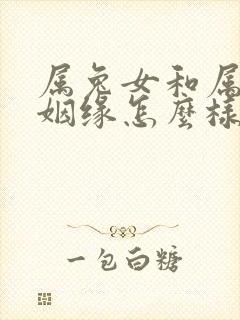 属兔女和属
姻缘怎麽样
一包白糖